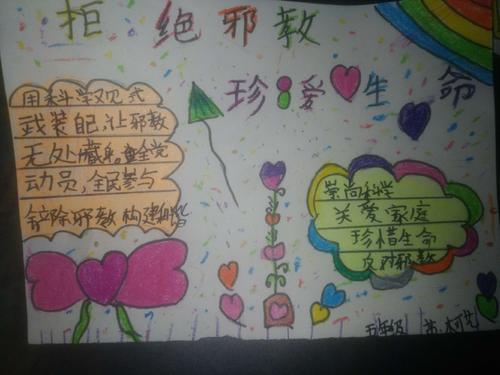 拒绝邪教
珍爱生命
用科学观式
武装自己,让邪教
无处藏身。全党
动员,全民参与
铲除邪教 构建和谐
崇尚科学
关爱家庭
珍惜生命
反对邪教
五年级